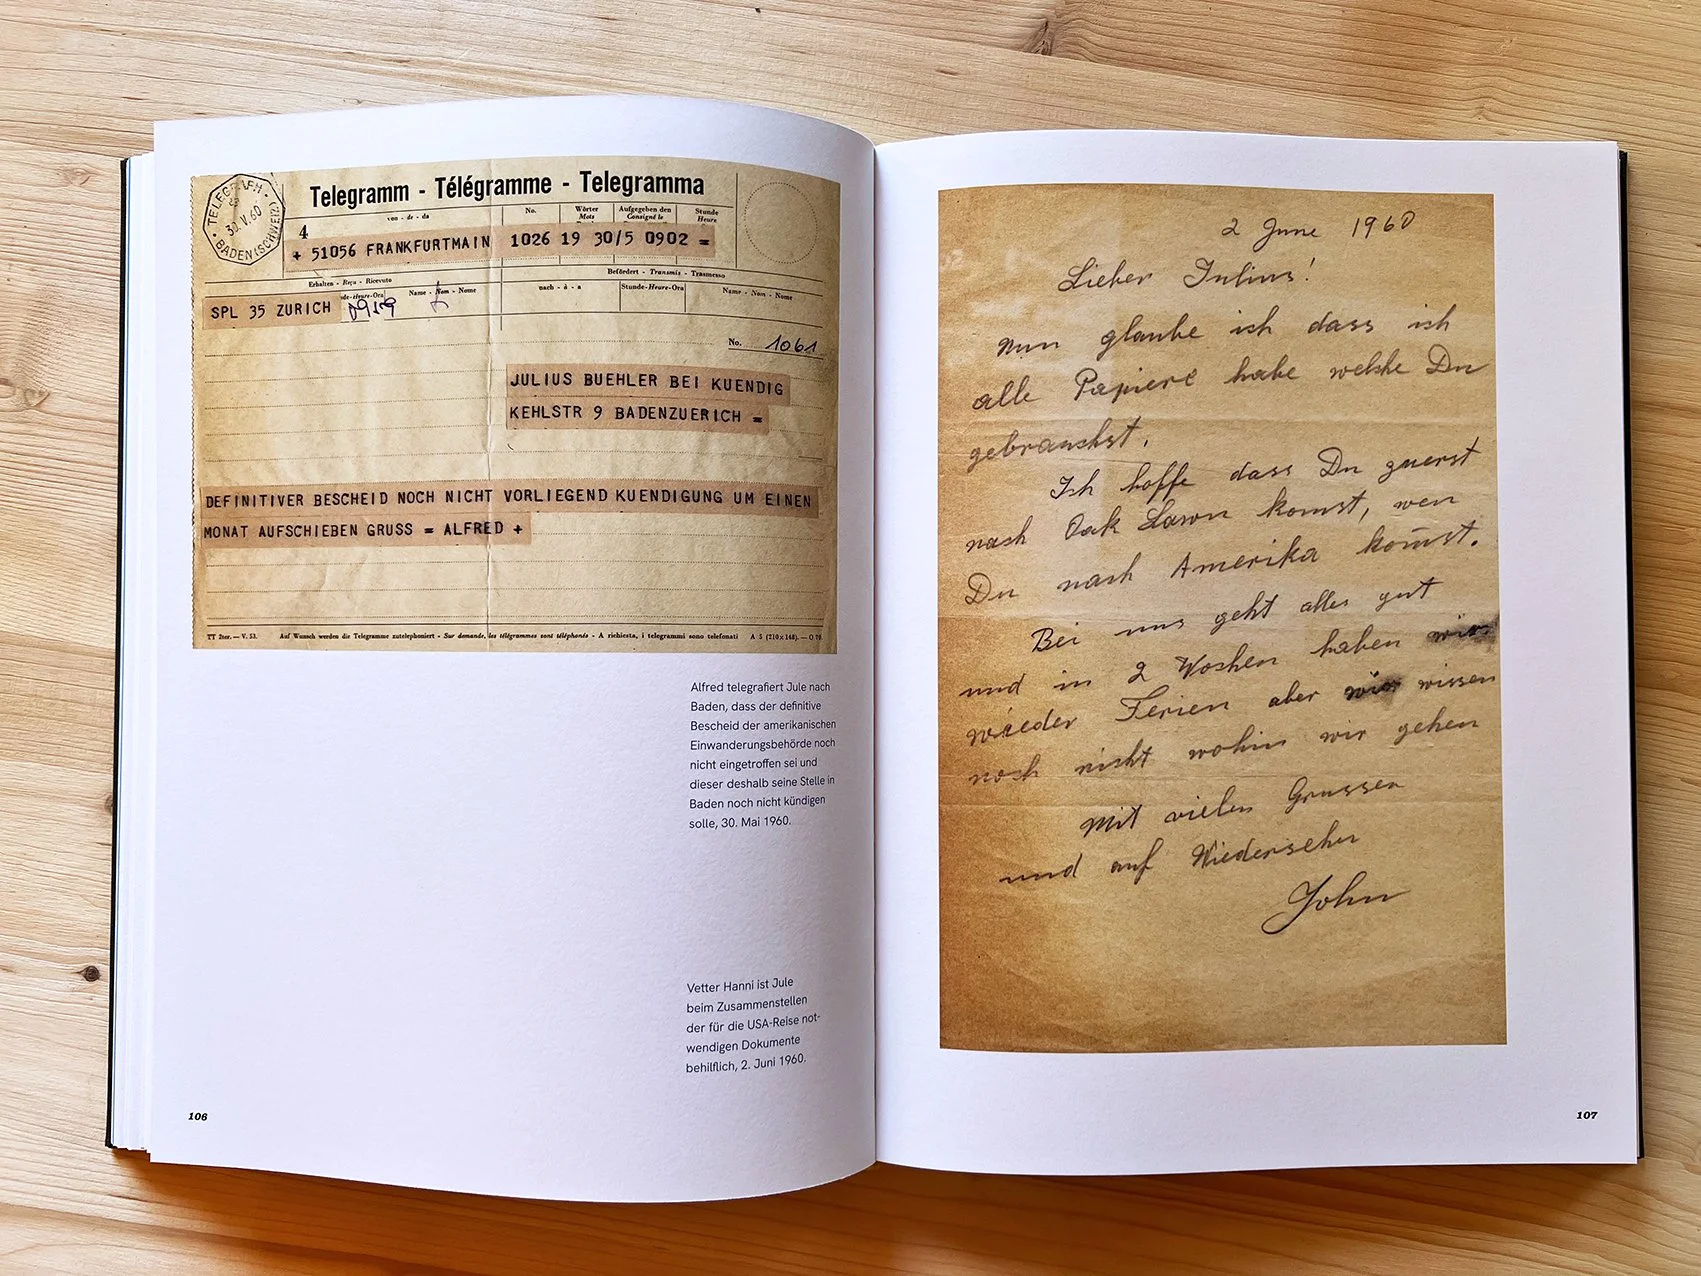 Telegramm - Télégramme - Telegramma
TELEGRAPH
30.V.60
BADEN (SCHWEIZ)
von - de - da
No.
Wörter
Mots
Aufgegeben den
Consigné le
Stunde
Heure
4
+ 51056 FRANKFURTMAIN 1026 19 30/5 0902 =
Erhalten - Reçu - Ricevuto
Befördert - Transmis - Trasmesso
Name - Nom - Nome
nach - à - a
Stunde-Heure-Ora
Name - Nom - Nome
SPL 35 ZURICH
No. 1061
JULIUS BUEHLER BEI KUENDIG
KEHLSTR 9 BADENZUERICH =
DEFINITIVER BESCHEID NOCH NICHT VORLIEGEND KUENDIGUNG UM EINEN
MONAT AUFSCHIEBEN GRUSS = ALFRED +
TT 2ter. — V. 53. Auf Wunsch werden die Telegramme zutelephoniert - Sur demande, les télégrammes sont téléphonés - A richiesta, i telegrammi sono telefonati A 5 (210×148). — Q 70.
Alfred telegrafiert Jule nach
Baden, dass der definitive
Bescheid der amerikanischen
Einwanderungsbehörde noch
nicht eingetroffen sei und
dieser deshalb seine Stelle in
Baden noch nicht kündigen
solle, 30. Mai 1960.
Vetter Hanni ist Jule
beim Zusammenstellen
der für die USA-Reise not-
wendigen Dokumente
behilflich, 2. Juni 1960.
106
2 June 1960
Lieber Julius!
Nun glaube ich dass ich
alle Papiere habe welche Du
gebrauchst.
Ich hoffe dass Du zuerst
nach Oak Lawn komst, wen
Du nach Amerika kom̄st.
Bei uns geht alles gut
und in 2 Wochen haben wir
wieder Ferien aber wir wissen
noch nicht wohin wir gehen
Mit vielen Grussen
und auf Wiedersehen
John
107